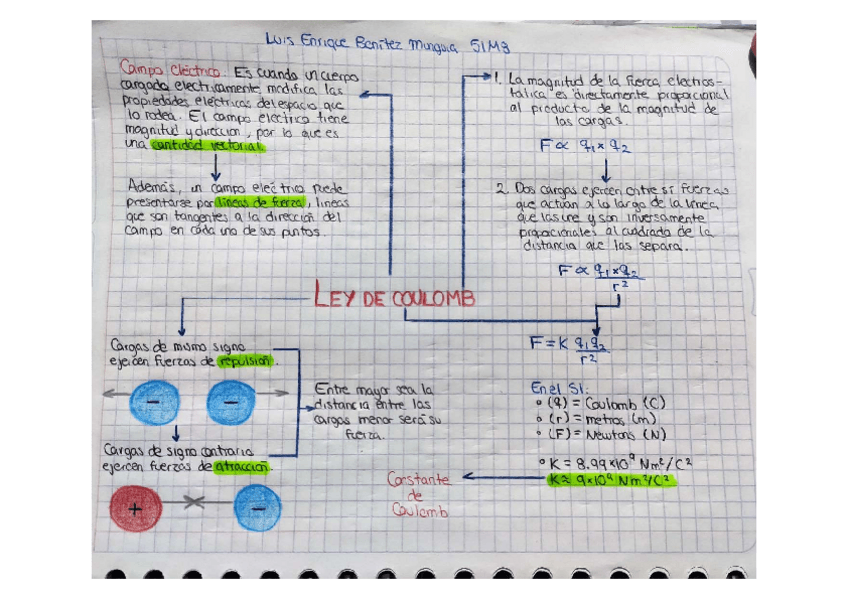 Luis Enrique Benítez Munguia 51M3
Campo eléctrico. Es cuando un cuerpo
cargado electricamente, modifica las
propiedades eléctricas del espacio que
lo rodea. El campo electrico tiene
magnitud y direccion, por lo que es
una cantidad vectorial.
Además, un campo eléctrico puede
presentarse por lineas de fuerza, lineas
que son tangentes a la dirección del
campo en cada uno de sus puntos.
1. La magnitud de la fuerza electros-
tatica es directamente proporcional
al producto de la magnitud de
las cargas.
F ∝ q₁ × q₂
2. Dos cargas ejercen entre sí fuerzas
que actúan a lo largo de la linea
que las une y son inversamente
proporcionales al cuadrado de la
distancia que las separa.
F ∝ q₁ × q₂
r²
LEY DE COULOMB
F = K q₁q₂
r²
Cargas de mismo signo
ejercen fuerzas de repulsión.
- -
Entre mayor sea la
distancia entre las
cargas menor será su
fuerza.
Cargas de signo contrario
ejercen fuerzas de atracción.
+ -
En el SI:
(q) = Coulomb (C)
(r) = metros (m)
(F) = Newtons (N)
K = 8.99×10⁹ Nm²/C²
K ≈ 9×10⁹ Nm²/C²
Constante
de
Coulomb